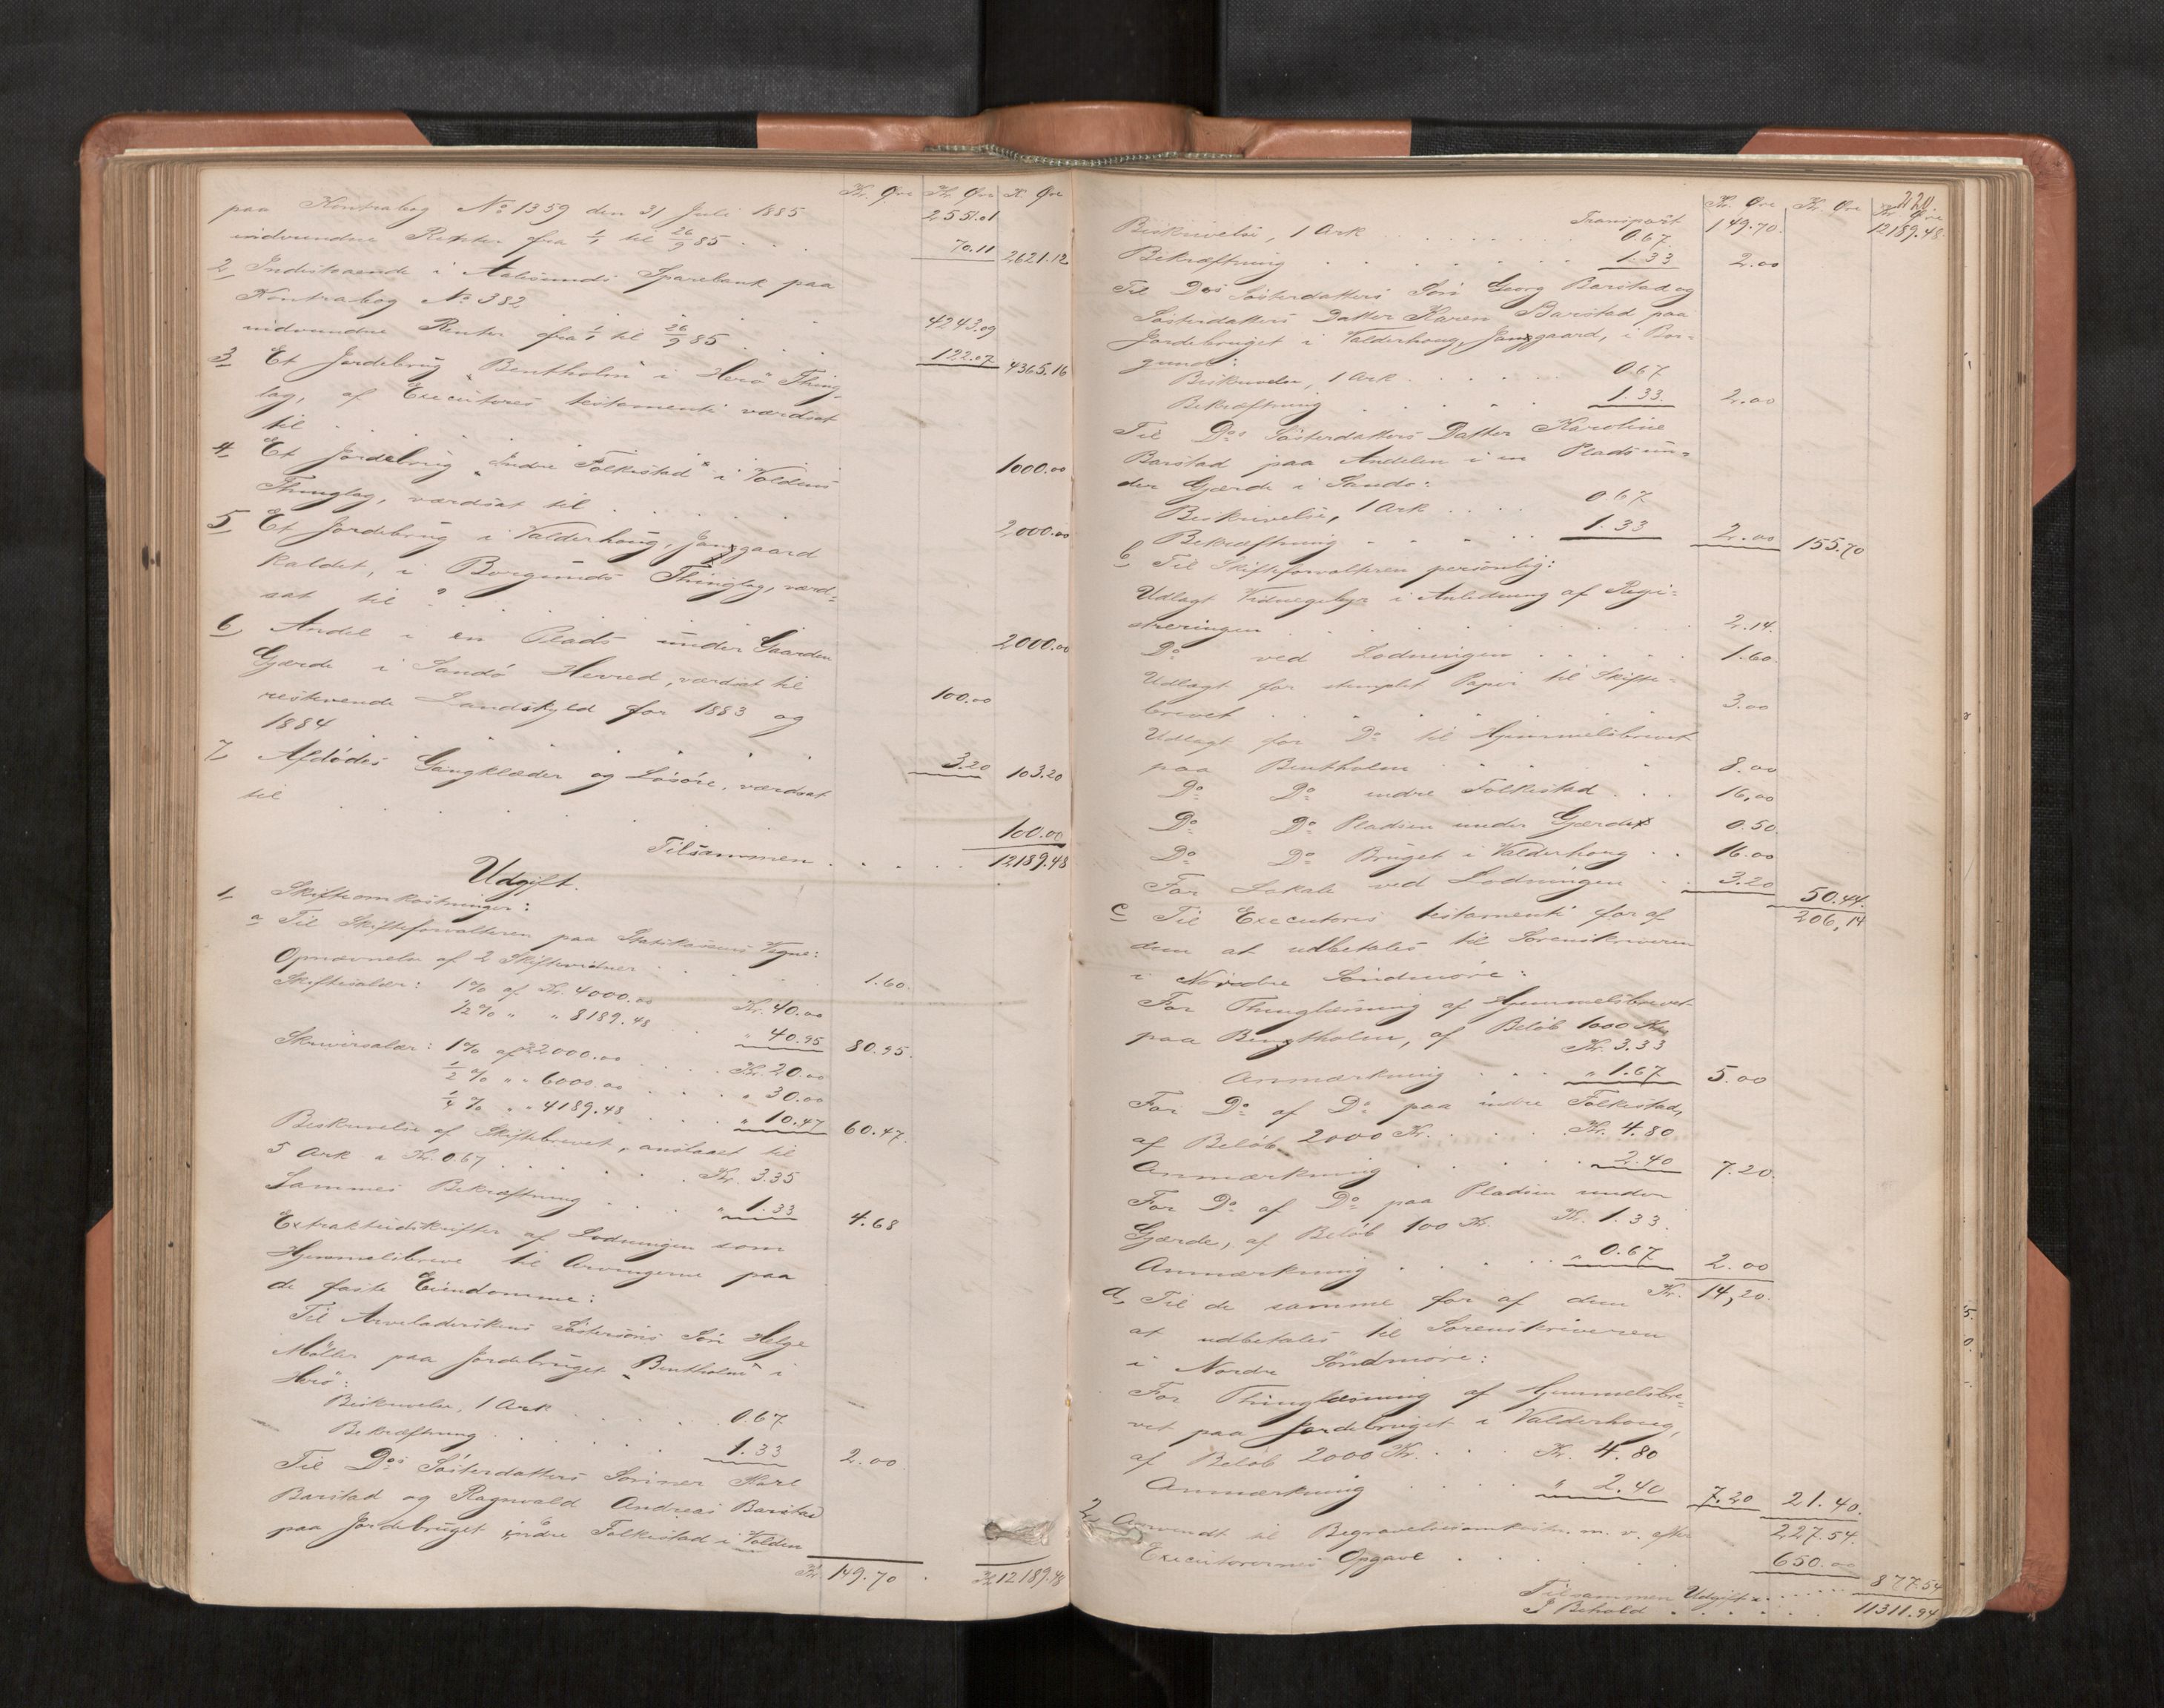 Kr. Øre Kr. Øre Kr. Øre
paa Kontrabog No 1359 den 31 Juli 1885 2551.01
indvundne Renter fra 1/1 til 26/9 85 . . . 70.11 2621.12
2 Indestaaende i Aalesunds Sparebank paa
Kontrabog No 382 . . . 4243.09
indvundne Renter fra 1/1 til 26/9 85 . . . 122.07 4365.16
3 Et Jordebrug "Bentholm" i Herö Thing-
lag, af Executores testamenti værdsat
til . . . 1000.00
4 Et Jordebrug "Indre Folkestad" i Voldens
Thinglag, værdsat til . . . 2000.00
5 Et Jordebrug i Valderhoug, Jangaard
kaldet, i Borgunds Thinglag, værd-
sat til . . . 2000.00
6 Andel i en Plads under Gaarden
Gjærde i Sandö Herred, værdsat til 100.00
resterende Landskyld for 1883 og
1884 . . . 3.20 103.20
7 Afdödes Gangklæder og Lösöre, værdsat
til . . . 100.00
Tilsammen . . . 12189.48
Udgift.
1, Skifteomkostninger:
a Til Skifteforvalteren paa Statskassens Vegne:
Opnævnelse af 2 Skiftevidner . . . 1.60
Skiftesalær: 1% af Kr. 4000.00 Kr. 40.00
1/2% " " 8189.48 . . " 40.95 80.95.
Skriversalær: 1% af 2000.00 . . . Kr. 20.00
1/2 % " " 6000.00 . . . " 30.00
1/4 % " " 4189.48 . . . " 10.47 60.47.
Beskrivelse af Skiftebrevet, anslaaet til
5 Ark a Kr. 0.67 . . . Kr. 3.35
Sammes Bekræftning . . . " 1.33 4.68
Extraktudskrifter af Lodningen som
Hjemmelsbreve til Arvingerne paa
de faste Eiendomme:
Til Arveladerskens Söstersöns Sön Helge
Möller paa Jordebruget "Bentholm" i
Herö:
Beskrivelse, 1 Ark . . . 0.67
Bekræftning . . . 1.33 2.00
Til Dos Sösterdatters Sönner Karl
Barstad og Ragnvald Andreas Barstad
paa Jordebruget indre Folkestad i Volden
Kr. 149.70 . Kr. 12189.48
220.
Kr. Øre Kr. Øre Kr. Øre
Transport 149.70. 12189.48.
Beskrivelse, 1 Ark . . . 0.67.
Bekræftning . . . 1.33 2.00
Til Dos Sösterdatters Sön Georg Barstad og
Sösterdatters Datter Karen Barstad paa
Jordebruget i Valderhoug, Jangaard, i Bor-
gund:
Beskrivelse, 1 Ark . . . 0.67
Bekræftning . . . 1.33. 2.00
Til Dos Sösterdatters Datter Karoline
Barstad paa Andelen i en Plads un-
der Gjærde i Sandö:
Beskrivelse, 1 Ark . . . 0.67
Bekræftning . . . 1.33 2.00 155.70
b Til Skifteforvalteren personlig:
Udlagt Vidnegebyr i Anledning af Regi-
streringen . . . 2.14.
Do ved Lodningen . . . 1.60.
Udlagt for stemplet Papir til Skifte-
brevet . . . 3.00
Udlagt for Do til Hjemmelsbrevet
paa Bentholm . . . 8.00
Do Do indre Folkestad . . . 16,00
Do Do Pladsen under Gjærde 0.50.
Do Do Bruget i Valderhoug . . 16.00
For Lokale ved Lodningen . . 3.20 50.44.
206,14
c Til Executores testamenti for af
dem at udbetales til Sorenskriveren
i Söndmöre:
For Thinglæsning af Hjemmelsbrevet
paa Bentholm, af Belöb 1000 Kr.
Kr. 3.33
Anmærkning . . . " 1.67 5.00
For Do af Do paa indre Folkestad,
af Belöb 2000 Kr. . . . Kr. 4.80
Anmærkning . . . 2.40 7.20.
For Do af Do paa Pladsen under
Gjærde, af Belöb 100 Kr. Kr. 1.33.
Anmærkning . . . " 0.67 2.00
Kr. 14,20.
d, Til de samme for af dem
at udbetales til Sorenskriveren
i Nordre Söndmöre:
For Thinglæsning af Hjemmelsbre-
vet paa Jordebruget i Valderhoug,
af Belöb 2000 Kr. . . . Kr. 4.80
Anmærkning . . . " 2.40 7.20 21.40.
227.54.
2 Anvendt til Begravelsesomkostn. m. v. efter
Executorernes Opgave . . . 650.00
877.54
Tilsammen Udgift . . .
I Behold . . . 11311.94